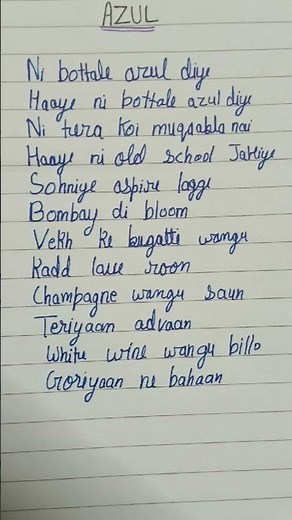 AZUL
Ni bottale azul diye
Haaye ni bottale azul diye
Ni tera koi muqsabla nai
Haaye ni old school Jattiye
Sohniye aspire lagge
Bombay di bloom
Vekh ke bugatti wangu
Kadd laue roon
Champagne wangu saun
Teriyaan advaan
White wine wangu billo
Goriyaan ne bahaan